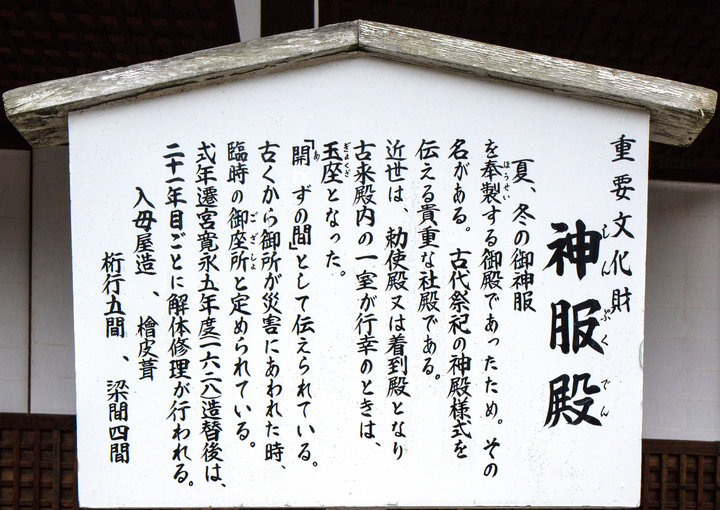 重要文化財
神服殿
しんぷくでん
夏、冬の御神服
を奉製する御殿であったため。その
ほうせい
名がある。古代祭祀の神殿様式を
伝える貴重な社殿である。
近世は、勅使殿又は着到殿となり
古来殿内の一室が行幸のときは、
玉座となった。
ぎょくざ
『開ずの間』として伝えられている。
あ
古くから御所が災害にあわれた時、
臨時の御座所と定められている。
ござしょ
式年遷宮寛永五年度(一六二八)造替後は、
二十一年目ごとに解体修理が行われる。
入母屋造、檜皮葺
桁行五間、梁間四間